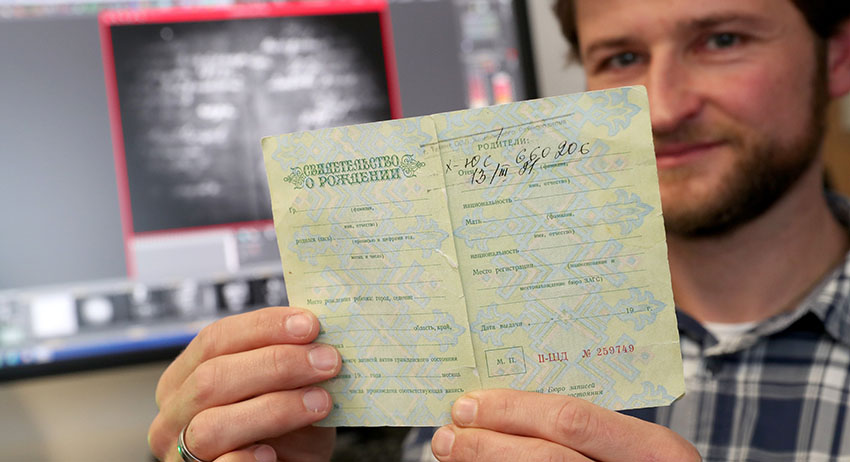 СВИДЕТЕЛЬСТВО
О РОЖДЕНИИ
Гр.
(фамилия,
имя, отчество)
родился (лась)
(прописью и цифрами год,
месяц и число)
Место рождения ребенка: город, селение
область, край,
записи актов гражданского состояния
19 года месяца
числа произведена соответствующая запись
РОДИТЕЛИ:
X-ЮС 660206
13/III
Отец
(фамилия,
имя, отчество)
национальность
Мать
(фамилия,
имя, отчество)
национальность
Место регистрации
(наименование и
местонахождение бюро ЗАГС)
Дата выдачи 19 г.
М. П.
II-ШД № 259749
Бюро записей
состояния